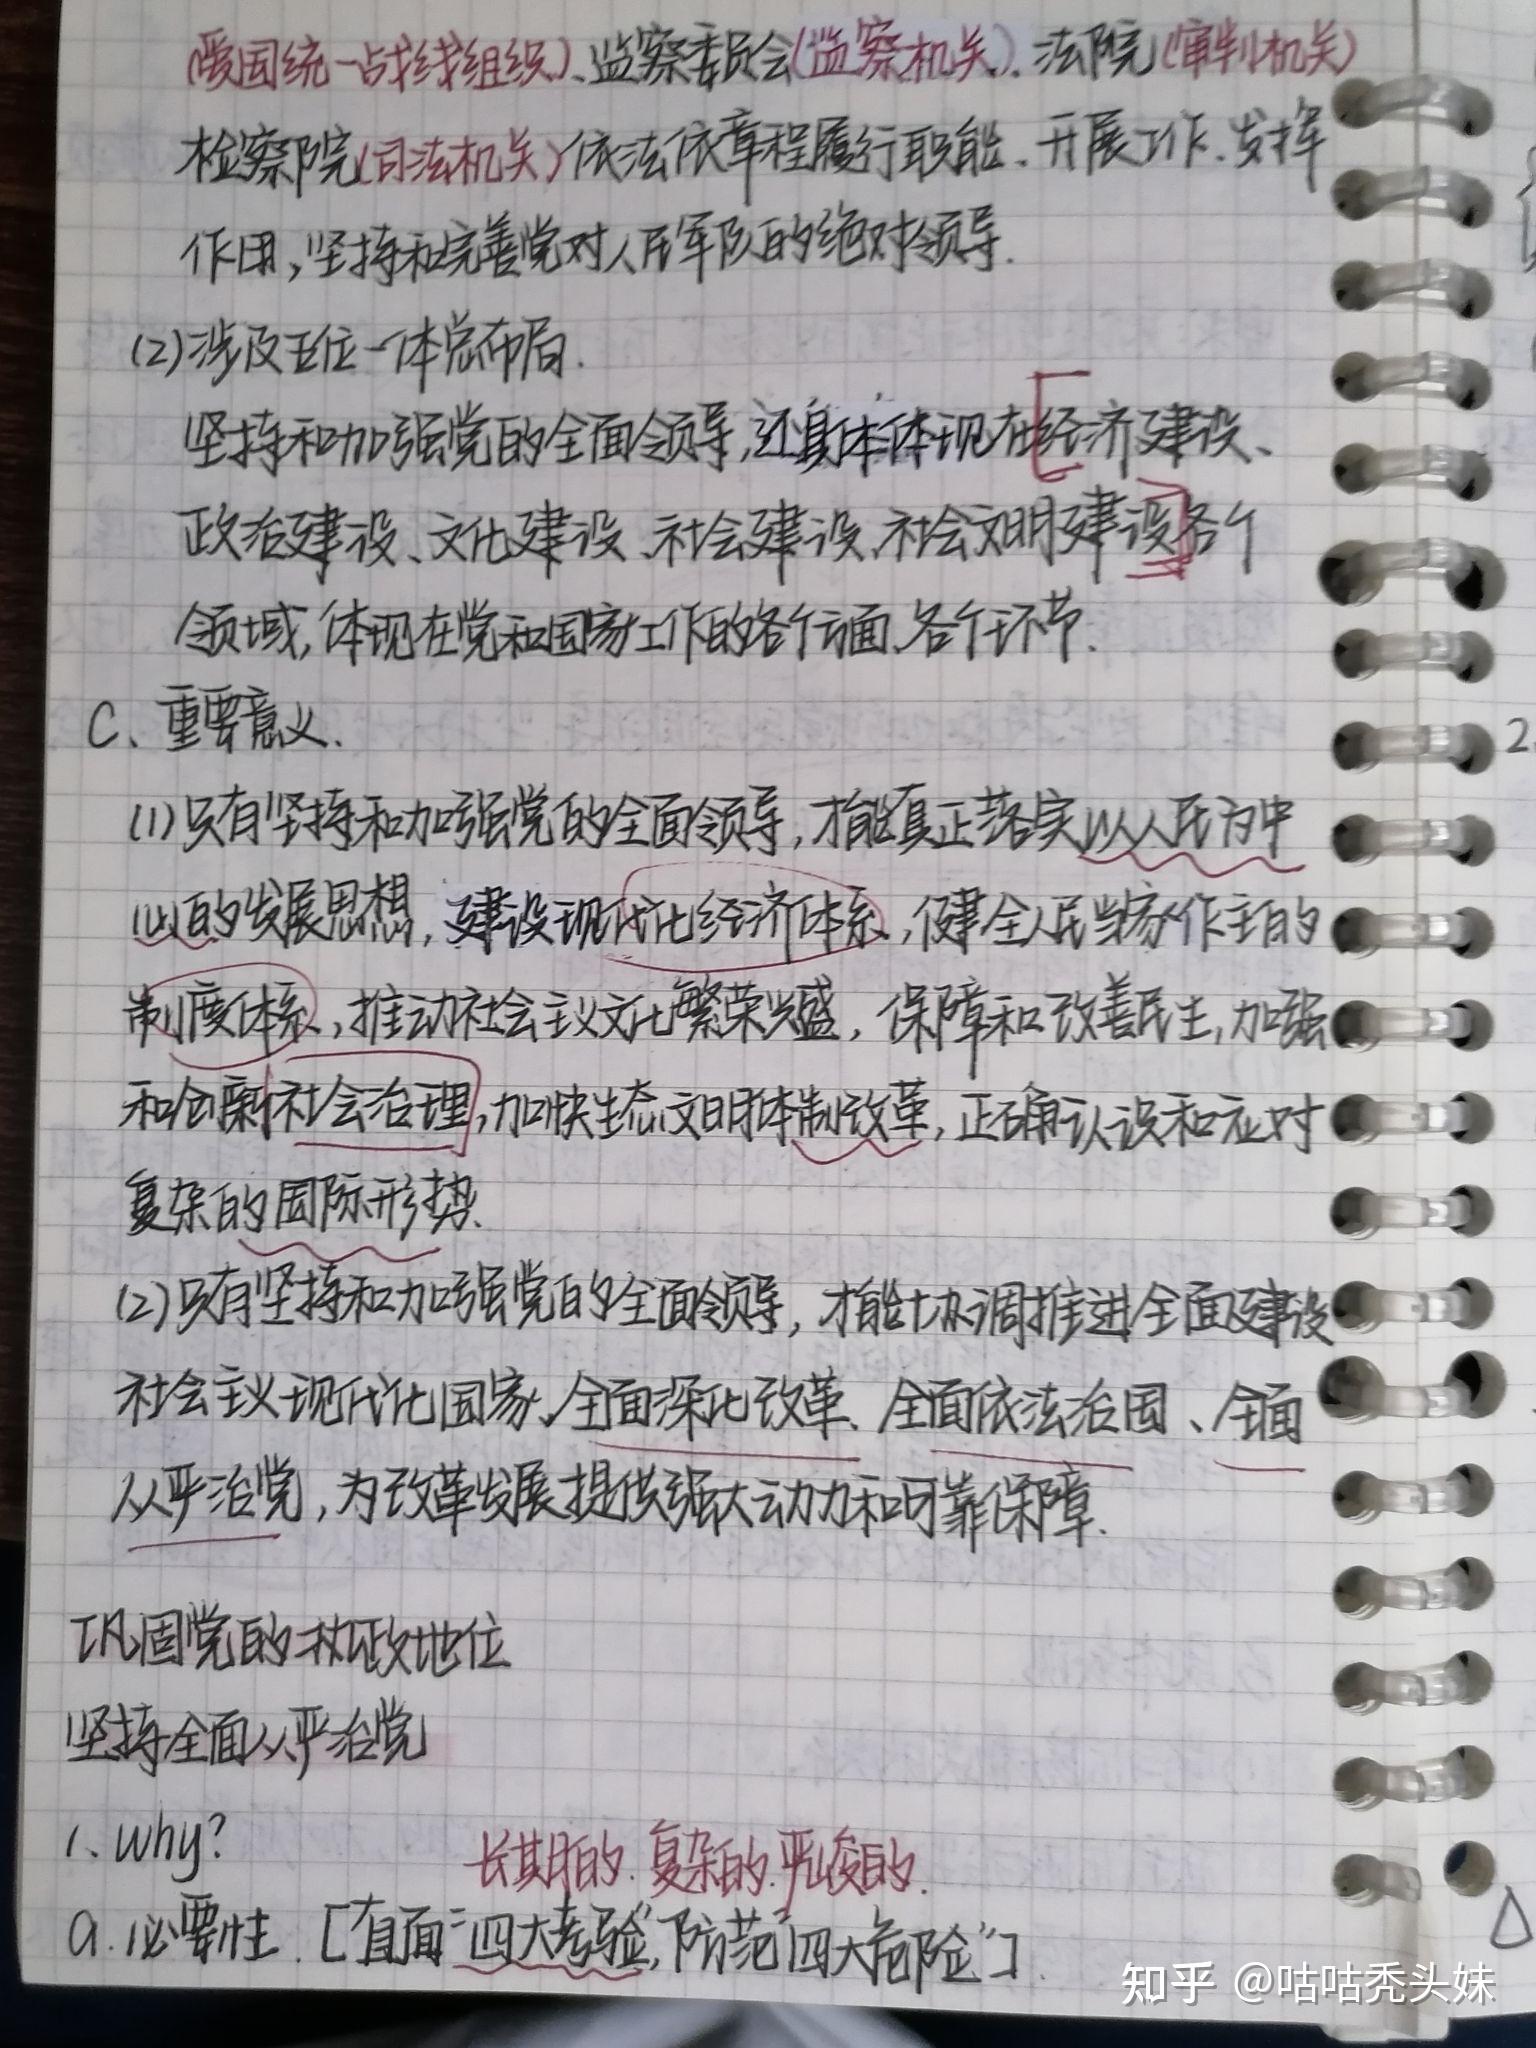 (爱国统一战线组织)、监察委员会(监察机关)、法院(审判机关)
检察院(司法机关)依法依章程履行职能、开展工作、发挥
作用,坚持和完善党对人民军队的绝对领导.
(2)涉及五位一体总布局.
坚持和加强党的全面领导,还具体体现在经济建设、
政治建设、文化建设、社会建设、社会文明建设各个
领域,体现在党和国家工作的各个方面、各个环节.
C、重要意义.
(1)只有坚持和加强党的全面领导,才能真正落实以人民为中
心的发展思想,建设现代化经济体系,健全人民当家作主的
制度体系,推动社会主义文化繁荣兴盛,保障和改善民生,加强
和创新社会治理,加快生态文明体制改革,正确认识和应对
复杂的国际形势.
(2)只有坚持和加强党的全面领导,才能协调推进全面建设
社会主义现代化国家、全面深化改革、全面依法治国、全面
从严治党,为改革发展提供强大动力和可靠保障.
巩固党的执政地位
坚持全面从严治党
1、why?
长期的.复杂的.严峻的.
a.必要性.[直面"四大考验",防范"四大危险"].
2.
知乎 @咕咕秃头妹